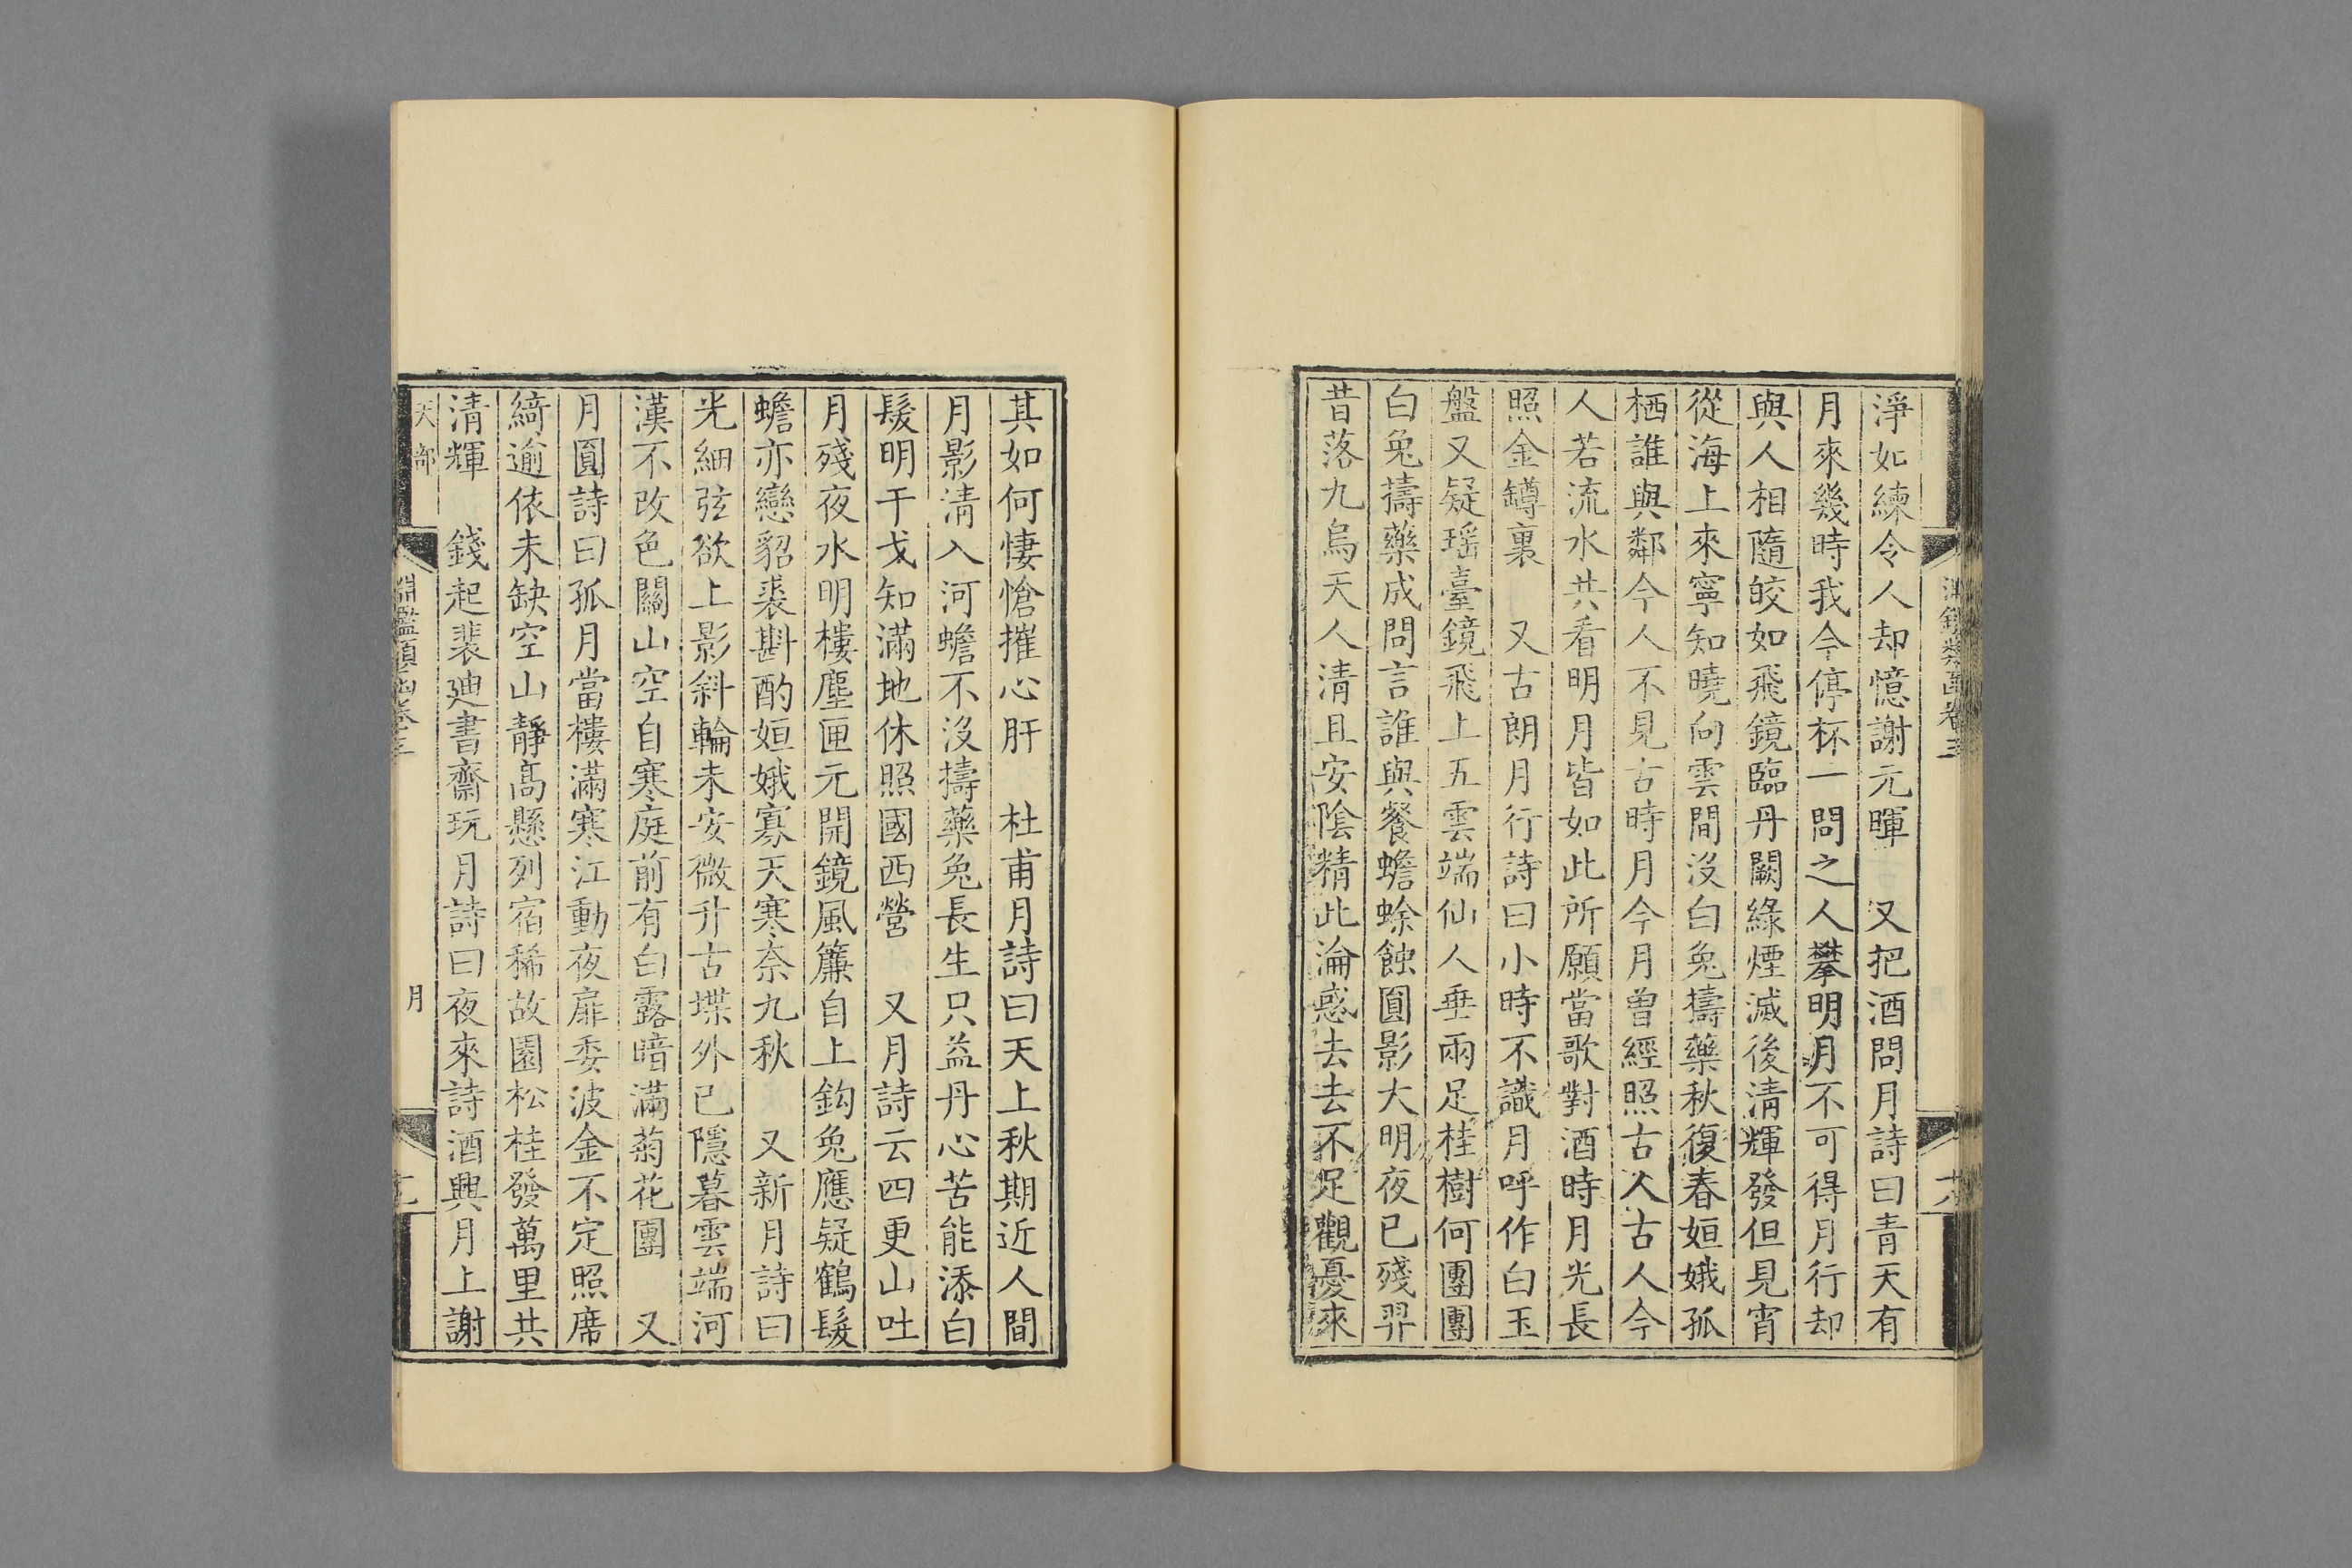 淨如練令人却憶謝元暉　又把酒問月詩曰青天有
月來幾時我今停杯一問之人攀明月不可得月行却
與人相隨皎如飛鏡臨丹闕綠煙滅後清輝發但見宵
從海上來寧知曉向雲間沒白兔擣藥秋復春姮娥孤
栖誰與鄰今人不見古時月今月曾經照古人古人今
人若流水共看明月皆如此所願當歌對酒時月光長
照金罇裏　又古朗月行詩曰小時不識月呼作白玉
盤又疑瑤臺鏡飛上五雲端仙人垂兩足桂樹何團團
白兔擣藥成問言誰與餐蟾蜍蝕圓影大明夜已殘羿
昔落九烏天人清且安陰精此淪惑去去不足觀憂來
其如何悽愴摧心肝　杜甫月詩曰天上秋期近人間
月影清入河蟾不沒擣藥兔長生只益丹心苦能添白
髮明干戈知滿地休照國西營　又月詩云四更山吐
月殘夜水明樓塵匣元開鏡風簾自上鈎兔應疑鶴髮
蟾亦戀貂裘斟酌姮娥寡天寒奈九秋　又新月詩曰
光細弦欲上影斜輪未安微升古堞外已隱暮雲端河
漢不改色關山空自寒庭前有白露暗滿菊花團　又
月圓詩曰孤月當樓滿寒江動夜扉委波金不定照席
綺逾依未缺空山靜高懸列宿稀故園松桂發萬里共
清輝　錢起裴迪書齋玩月詩曰夜來詩酒興月上謝
天部
淵鑑類函卷三
月